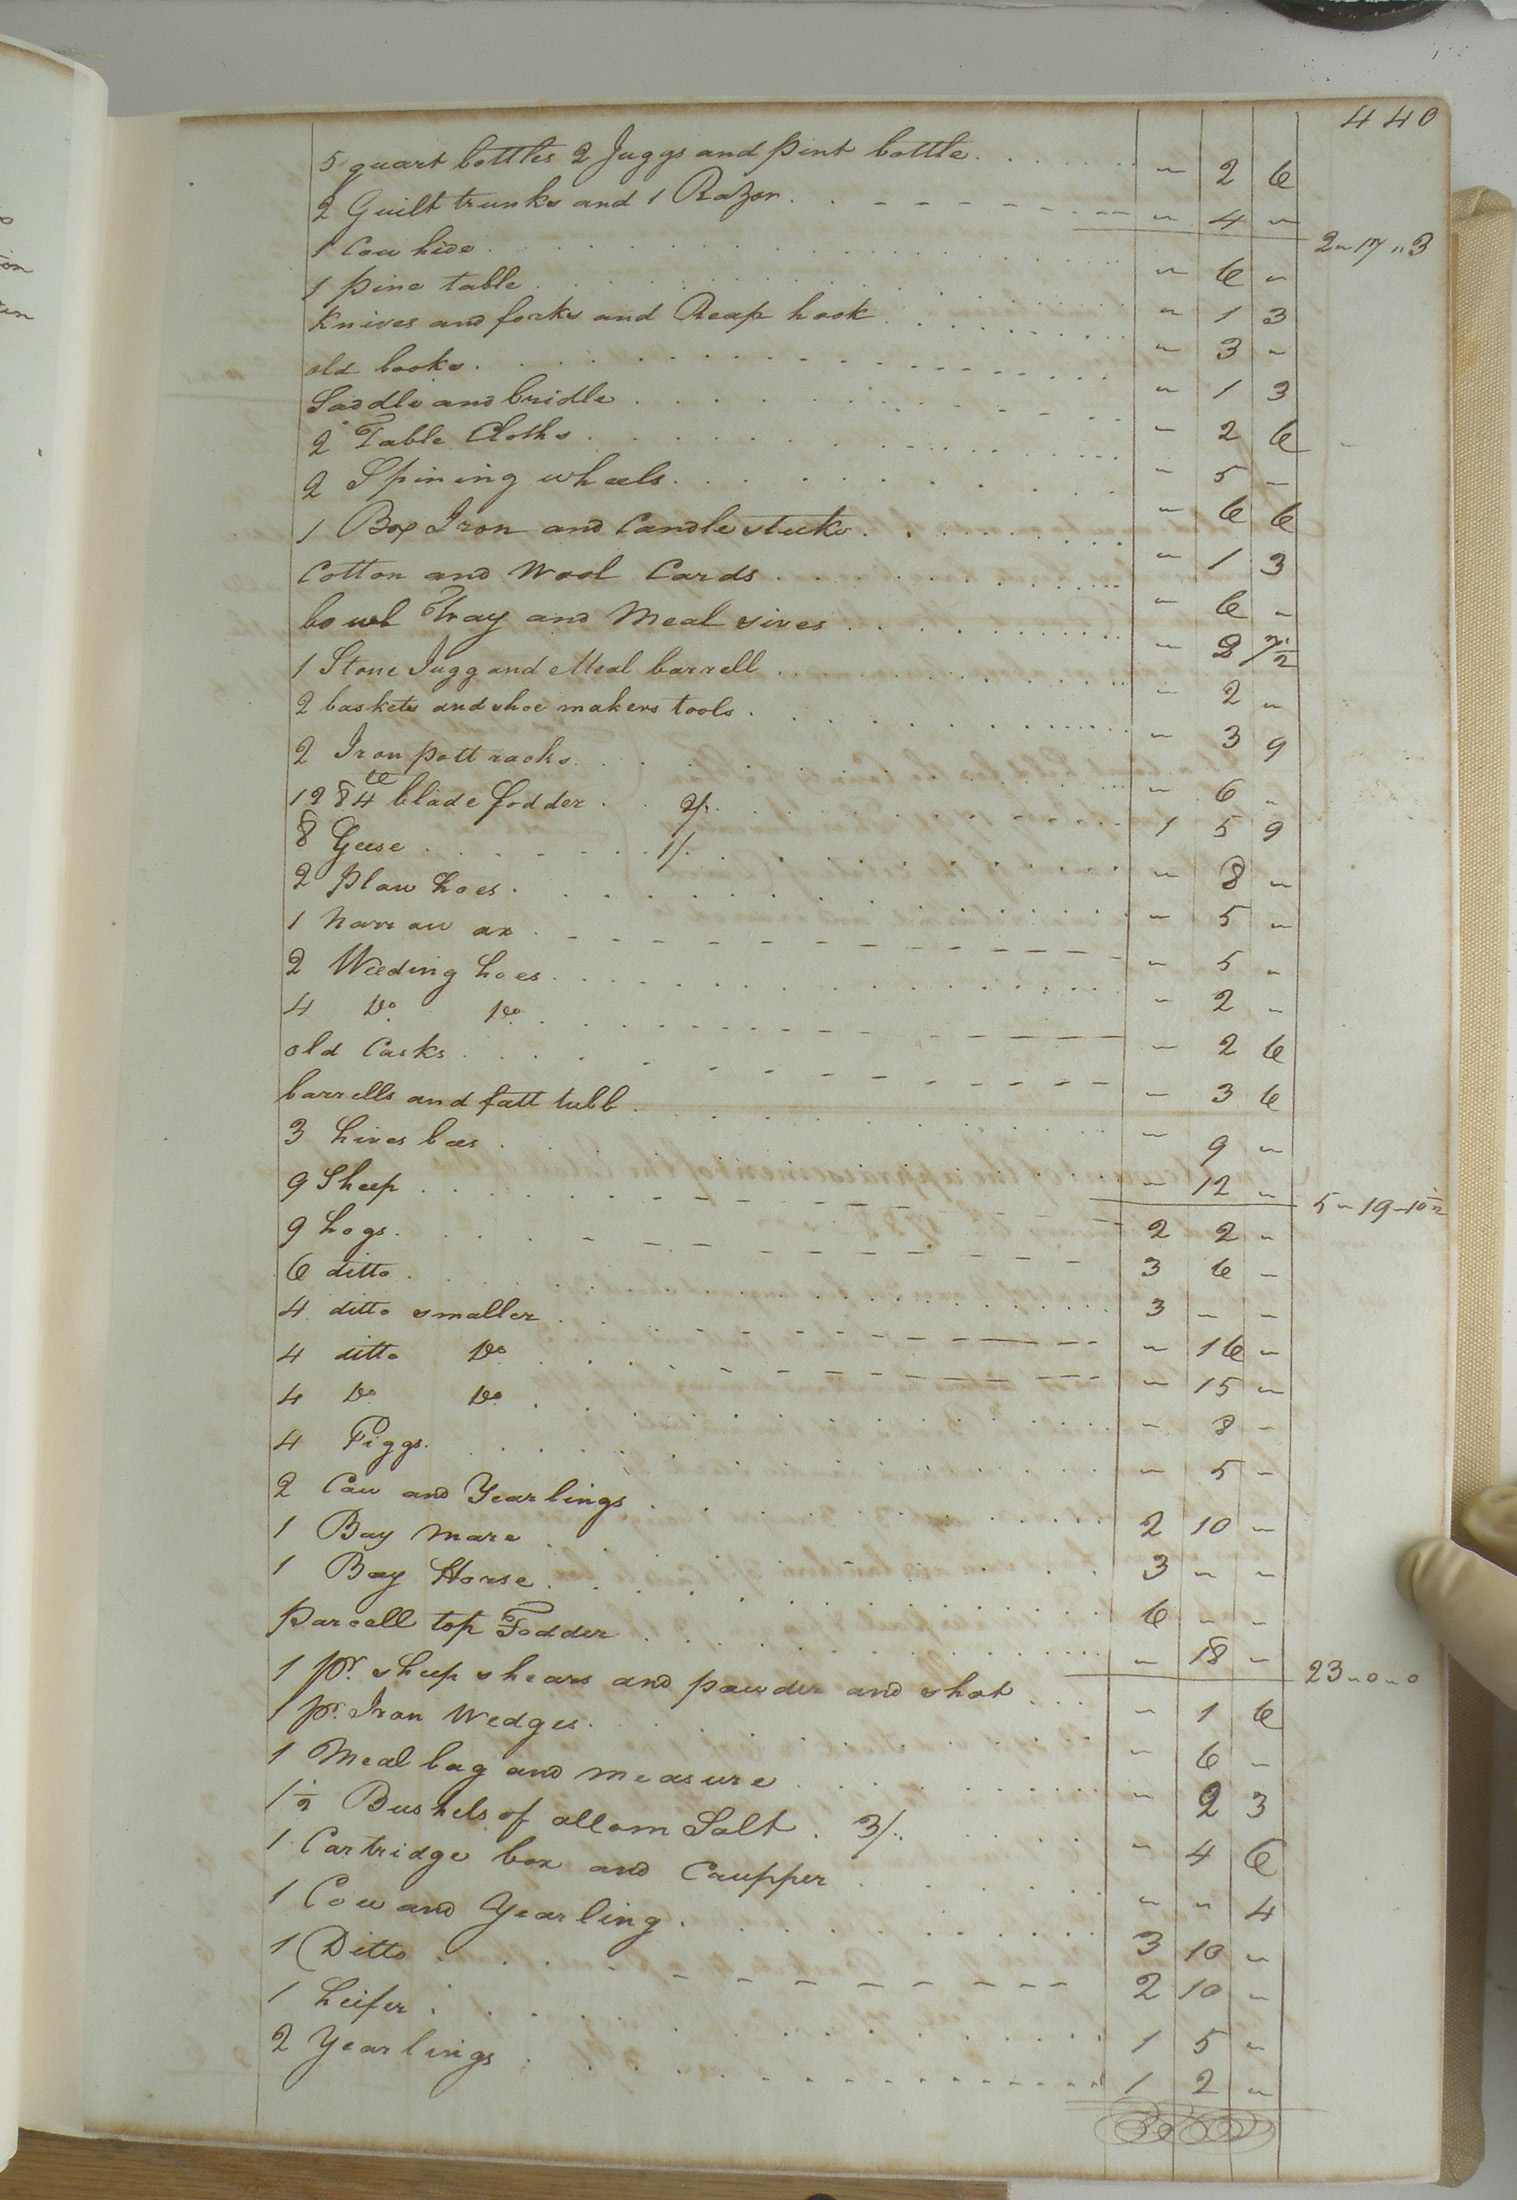 440
5 quart bottles 2 Juggs and pint bottle . . . . . . . " 2 6
2 Guilt trunks and 1 Razor . . . . . . " 4 " 2 " 17 " 3
1 Cow hide . . . . . . " 6 "
1 pine table . . . . . . " 1 3
Knives and forks and Reap hook . . . . . . " 3 "
old books . . . . . . " 1 3
Saddle and bridle . . . . . . " 2 6
2 Table Cloths . . . . . . " 5 "
2 Spining wheels . . . . . . " 6 6
1 Box Iron and Candlesticks . . . . . . " 1 3
Cotton and Wool Cards . . . . . . " 6 "
bowl Tray and Meal sives . . . . . . " 2 7½
1 Stone Jugg and Meal barrell . . . . . . " 2 "
2 baskets and shoe makers tools . . . . . . " 3 9
2 Iron pott racks . . . . . . " 6 "
128 lb blade fodder . . 2/. . . . . 1 5 9
8 Geese . . . . 1/. . . . . " 8 "
2 Plow hoes . . . . . . " 5 "
1 Narrow ax . . . . . . " 5 "
2 Weeding hoes . . . . . . " 2 "
4 Do. Do. . . . . . . " 2 6
old Casks . . . . . . " 3 6
barrells and fatt tubb . . . . . . " 9 "
3 hives bees . . . . . . " 12 " 5 " 19 " 10½
9 Sheep . . . . . . 2 2 "
9 hogs . . . . . . 3 6 "
6 ditto . . . . . . 3 " "
4 ditto smaller . . . . . . " 16 "
4 ditto Do . . . . . . " 15 "
4 Do. Do. . . . . . . " 8 "
4 Piggs . . . . . . " 5 "
2 Cow and Yearlings . . . . . . 2 10 "
1 Bay Mare . . . . . . 3 " "
1 Bay Horse . . . . . . 6 " "
parcell top Fodder . . . . . . " 18 " 23 " 0 " 0
1 pr. sheep shears and powder and shot . . . " 1 6
1 pr. Iron Wedges . . . . . . " 6 "
1 Meal bag and measure . . . . . . " 2 3
1½ Bushels of allom Salt . 3/. . . . . " 4 6
1 Cartridge box and Cupper . . . . . . " " 4
1 Cow and Yearling . . . . . . 3 10 "
1 Ditto . . . . . . 2 10 "
1 heifer . . . . . . 1 5 "
2 Yearlings . . . . . . 1 2 "